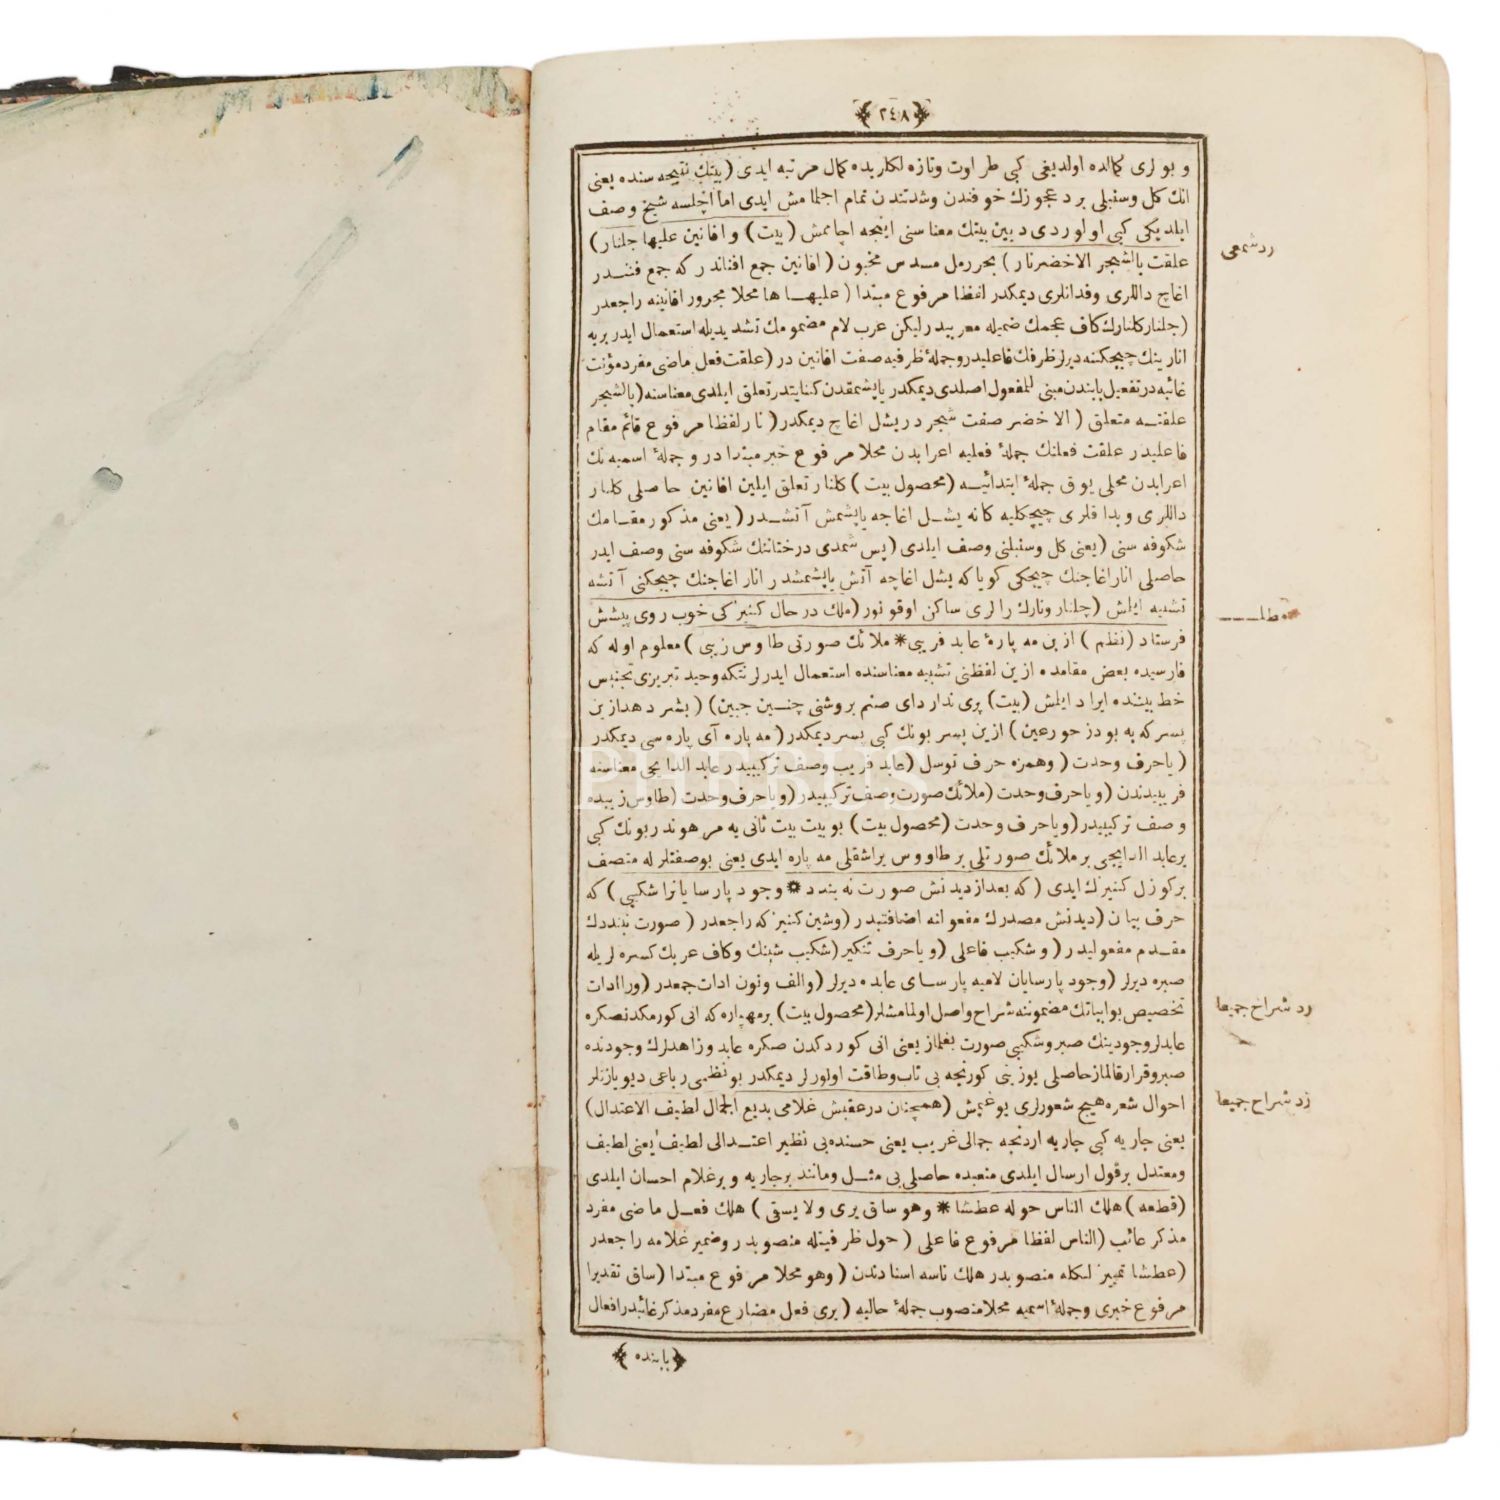 ٢٤٨
و بولری کمالده اولدیغی کبی طراوت وتازه لکلریده کمال مرتبه ایدی (بیتك نتیجه سنده یعنی
انك کل وسنبلی برد عجوزك خوفندن وشدتندن تمام اچلمامش ایدی اما اچلسه شیخ وصف
ایلدیکی کبی اولوردی دبین بیتك معناسنی اینجه اچامش (بیت) وافانین علیها جلنار)
علقت بالشجر الاخضرنار) بحر رمل مسدس مخبون (افانین جمع افناندر که جمع فنندر
اغاج داللری وفدانلری دیمکدر لفظا مرفوع مبتدا (علیها ها محلا مجرور افانینه راجعدر
(جلنار کلنارك کاف عجمك ضمیله معربیدر لیکن عرب لام مضمومك تشدیدیله استعمال ایدر بریه
انارینك چیچکنه دیرلر ظرفك فاعلیدر وجملهٔ ظرفیه صفت افانین در (علقت فعل ماضی مفرد مؤنث
غائبه در تفعیل بابندن مبنی للمفعول اصلدی دیمکدر یاپشمقدن کنایتدر تعلق ایلدی معناسنه (بالشجر
علقته متعلق (الاخضر صفت شجر در یشل اغاج دیمکدر (نار لفظا مرفوع قائم مقام
فاعلیدر علقت فعلنك جملهٔ فعلیه اعرابدن محلا مرفوع خبر مبتدا در وجملهٔ اسمیه نك
اعرابدن محلی یوق جملهٔ ابتدائیه (محصول بیت) کلنار تعلق ایلین افانین حاصلی کلنار
داللری وبداقلری چیچکلیه کانه یشل اغاجه یاپشمش آتشدر (یعنی مذکور مقامك
شکوفه سنی (یعنی کل وسنبلنی وصف ایلدی (پس شمدی درختاننك شکوفه سنی وصف ایدر
حاصلی انار اغاجنك چیچکی کویاکه یشل اغاچه آتش یاپشمشدر انار اغاجنك چیچکنی آتشه
تشبیه ایلمش (جلنار ونارك رالری ساکن اوقونور (ملك در حال کنیزکی خوب روی پیشش
فرستاد (نظم) ازین مه پارهٔ عابد فریبی * ملائك صورتی طاوس زیبی) معلوم اوله که
فارسیده بعض مقامده ازین لفظنی تشبیه معناسنده استعمال ایدرلر نتکه وحید تبریزی تجنیس
خط بیتنده ایراد ایلمش (بیت) پری ندارد ای صنم بروشنی چنین جبین) (بشر دهد ازین
پسر که به بود ز حورعین) ازین پسر بونك کبی پسر دیمکدر (مه پاره آی پاره سی دیمکدر
(یا حرف وحدت (وهمزه حرف توسل (عابد فریب وصف ترکیبیدر عابد الدایجی معناسنه
فریبیدندن (ویا حرف وحدت (ملائك صورت وصف ترکیبیدر (ویا حرف وحدت (طاوس زیبده
وصف ترکیبیدر (ویا حرف وحدت (محصول بیت) بو بیت بیت ثانی یه مرهوندر بونك کبی
بر عابد الدایجی بر ملائك صورتلی بر طاووس یراشقلی مه پاره ایدی یعنی بو صفتلرله متصف
بر کوزل کنیزك ایدی (که بعد از دیدنش صورت نه بندد * وجود پارسایانرا شکیبی) که
حرف بیان (دیدنش مصدرك مفعولنه اضافتیدر (وشین کنیزکه راجعدر (صورت نبنددك
مقدم مفعولیدر (وشکیب فاعلی (ویا حرف تنکیر (شکیب شینك وکاف عربك کسره لریله
صبره دیرلر (وجود پارسایان لامیه پارسای عابده دیرلر (والف ونون ادات جمعدر (ورا ادات
تخصیص بو ابیاتك مضموننه شراح واصل اولمامشلر (محصول بیت) بر مهپاره که انی کورمکدنصکره
عابدلر وجودینك صبر وشکیبی صورت بغلماز یعنی انی کوردکدن صکره عابد وزاهدلرك وجودنده
صبر وقرار قالماز حاصلی یوزینی کورنجه بی تاب وطاقت اولورلر دیمکدر بو نظمی رباعی دیو یازنلر
احوال شعره هیچ شعورلری یوغیمش (همچنان در عقبش غلامی بدیع الجمال لطیف الاعتدال)
یعنی جاریه کبی جاریه اردنجه جمالی غریب یعنی حسنده بی نظیر اعتدالی لطیف یعنی لطیف
ومعتدل بر قول ارسال ایلدی متعبده حاصلی بی مثل ومانند بر جاریه و بر غلام احسان ایلدی
(قطعه) هلك الناس حوله عطشا * وهو ساق یری ولا یسقی) هلك فعل ماضی مفرد
مذکر غائب (الناس لفظا مرفوع فاعلی (حول ظرفیتله منصوبدر وضمیر غلامه راجعدر
(عطشا تمییز لکله منصوبدر هلك ناسه اسنادندن (وهو محلا مرفوع مبتدا (ساق تقدیرا
مرفوع خبری وجملهٔ اسمیه محلا منصوب جملهٔ حالیه (یری فعل مضارع مفرد مذکر غائبدر افعال
یابنده
رد شمعی
رد شراح جمیعا
رد شراح جمیعا
PHEBUS